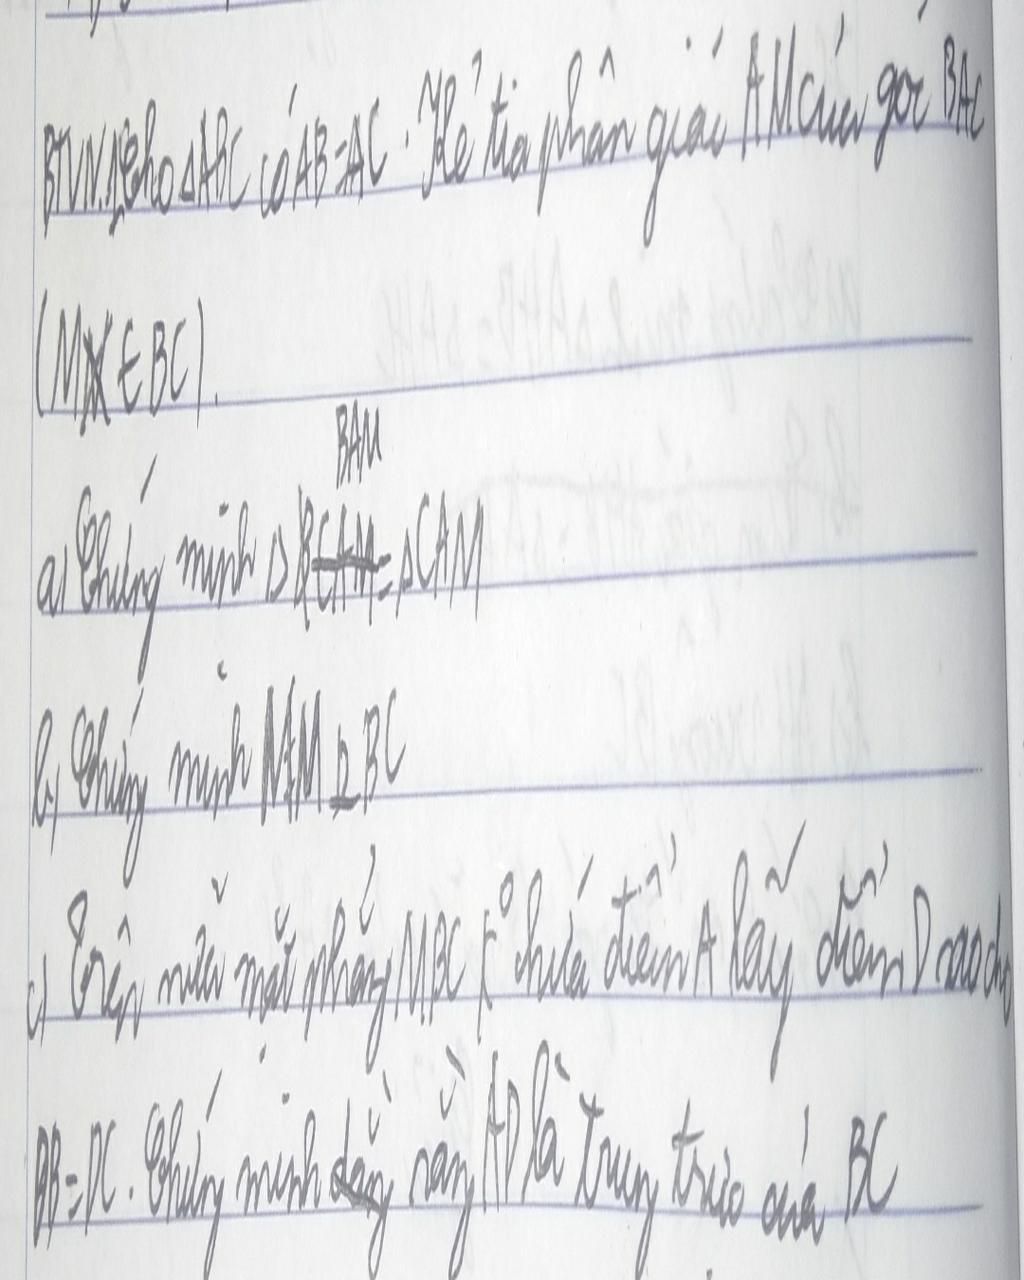 BTVN. 1, Cho ΔABC có AB=AC. Kẻ tia phân giác AM của góc BAC
(M ∈ BC).
a) Chứng minh Δ BAM = ΔCAM
b) Chứng minh AM ⊥ BC
c) Trên nửa mặt phẳng MBC k° chứa điểm A lấy điểm D sao cho
DB=DC. Chứng minh rằng AD là trung trực của BC